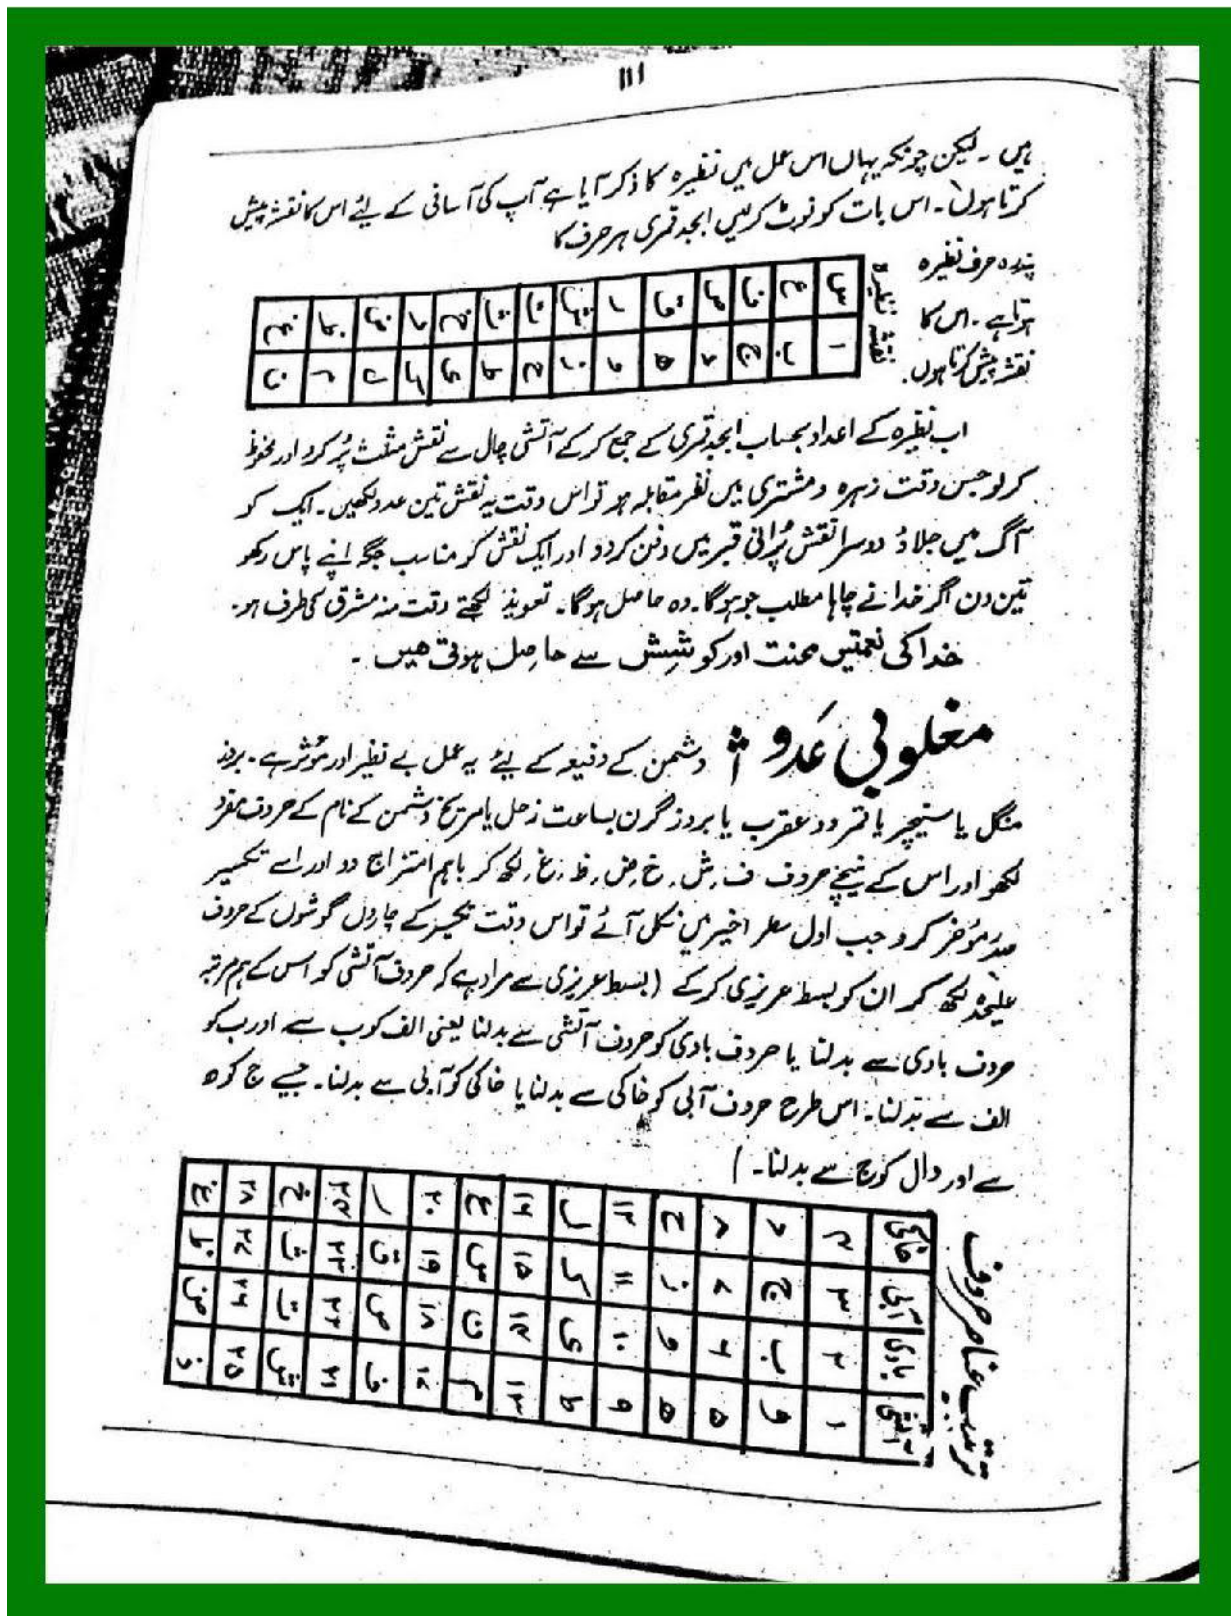 ۱۱۱
ہیں۔ لیکن چونکہ یہاں اس عمل میں نظیرہ کا ذکر آیا ہے آپ کی آسانی کے لئے اس کا نقشہ پیش
کرتا ہوں۔ اس بات کو نوٹ کرلیں ابجد قمری ہر حرف کا
پندہ حرف نظیرہ
ہوتا ہے۔ اس کا
نقشہ پیش کرتا ہوں۔
نقشہ نظیرہ
س ع ف ص ق ر ش ت ث خ ذ ض ظ غ
ا ب ج د ه و ز ح ط ی ک ل م ن
اب نظیرہ کے اعداد بحساب ابجد قمری کے جمع کرکے آتشی چال سے نقش مثلث پُر کرو اور محفوظ
کرلو جس وقت زہرہ و مشتری میں نظر مقابلہ ہو تو اس وقت یہ نقش تین عدد لکھیں۔ ایک کو
آگ میں جلاؤ دوسرا نقش پُرانی قبر میں دفن کردو اور ایک نقش کو مناسب جگہ اپنے پاس رکھو
تین دن اگر خدا نے چاہا مطلب جو ہوگا۔ وہ حاصل ہوگا۔ تعویذ لکھتے وقت منہ مشرق کی طرف ہو۔
خدا کی نعمتیں محنت اور کوشِش سے حاصِل ہوتی ھیں ۔
مغلوبی عَدو دشمن کے دفیعہ کے لئے یہ عمل بے نظیر اور مؤثر ہے۔ بروز
منگل یا سنیچر یا قمر در عقرب یا بروز گرہن بساعت زحل یا مریخ دشمن کے نام کے حروف مفرد
لکھو اور اس کے نیچے حروف ف، ش، خ، ض، ظ، غ، لکھ کر باہم امتزاج دو اور اسے تکسیر
صدر مؤخر کرو جب اول سطر اخیر میں نکل آئے تو اس وقت تکسیر کے چاروں گوشوں کے حروف
علیحدہ لکھ کر ان کو بسط عزیزی کرکے (بسط عزیزی سے مراد ہے کہ حروف آتشی کو اس کے ہم مرتبہ
حروف بادی سے بدلنا یا حروف بادی کو حروف آتشی سے بدلنا یعنی الف کو ب سے اور ب کو
الف سے بدلنا۔ اس طرح حروف آبی کو خاکی سے بدلنا یا خاکی کو آبی سے بدلنا۔ جیسے ج کو د
سے اور دال کو ج سے بدلنا۔)
ترتیب عناصر حروف
خاکی ۴ د ۸ ح ۱۲ ل ۱۶ ع ۲۰ ر ۲۴ خ ۲۸ غ
آبی ۳ ج ۷ ز ۱۱ ک ۱۵ س ۱۹ ق ۲۳ ث ۲۷ ظ
بادی ۲ ب ۶ و ۱۰ ی ۱۴ ن ۱۸ ص ۲۲ ت ۲۶ ض
آتشی ۱ ۵ ه ۹ ط ۱۳ م ۱۷ ف ۲۱ ش ۲۵ ذ